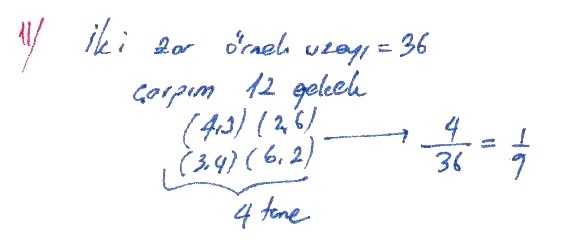 11/ iki zar örnek uzayı = 36
çarpım 12 gelecek
(4,3) (2,6)
(3,4) (6,2) → 4/36 = 1/9
4 tane